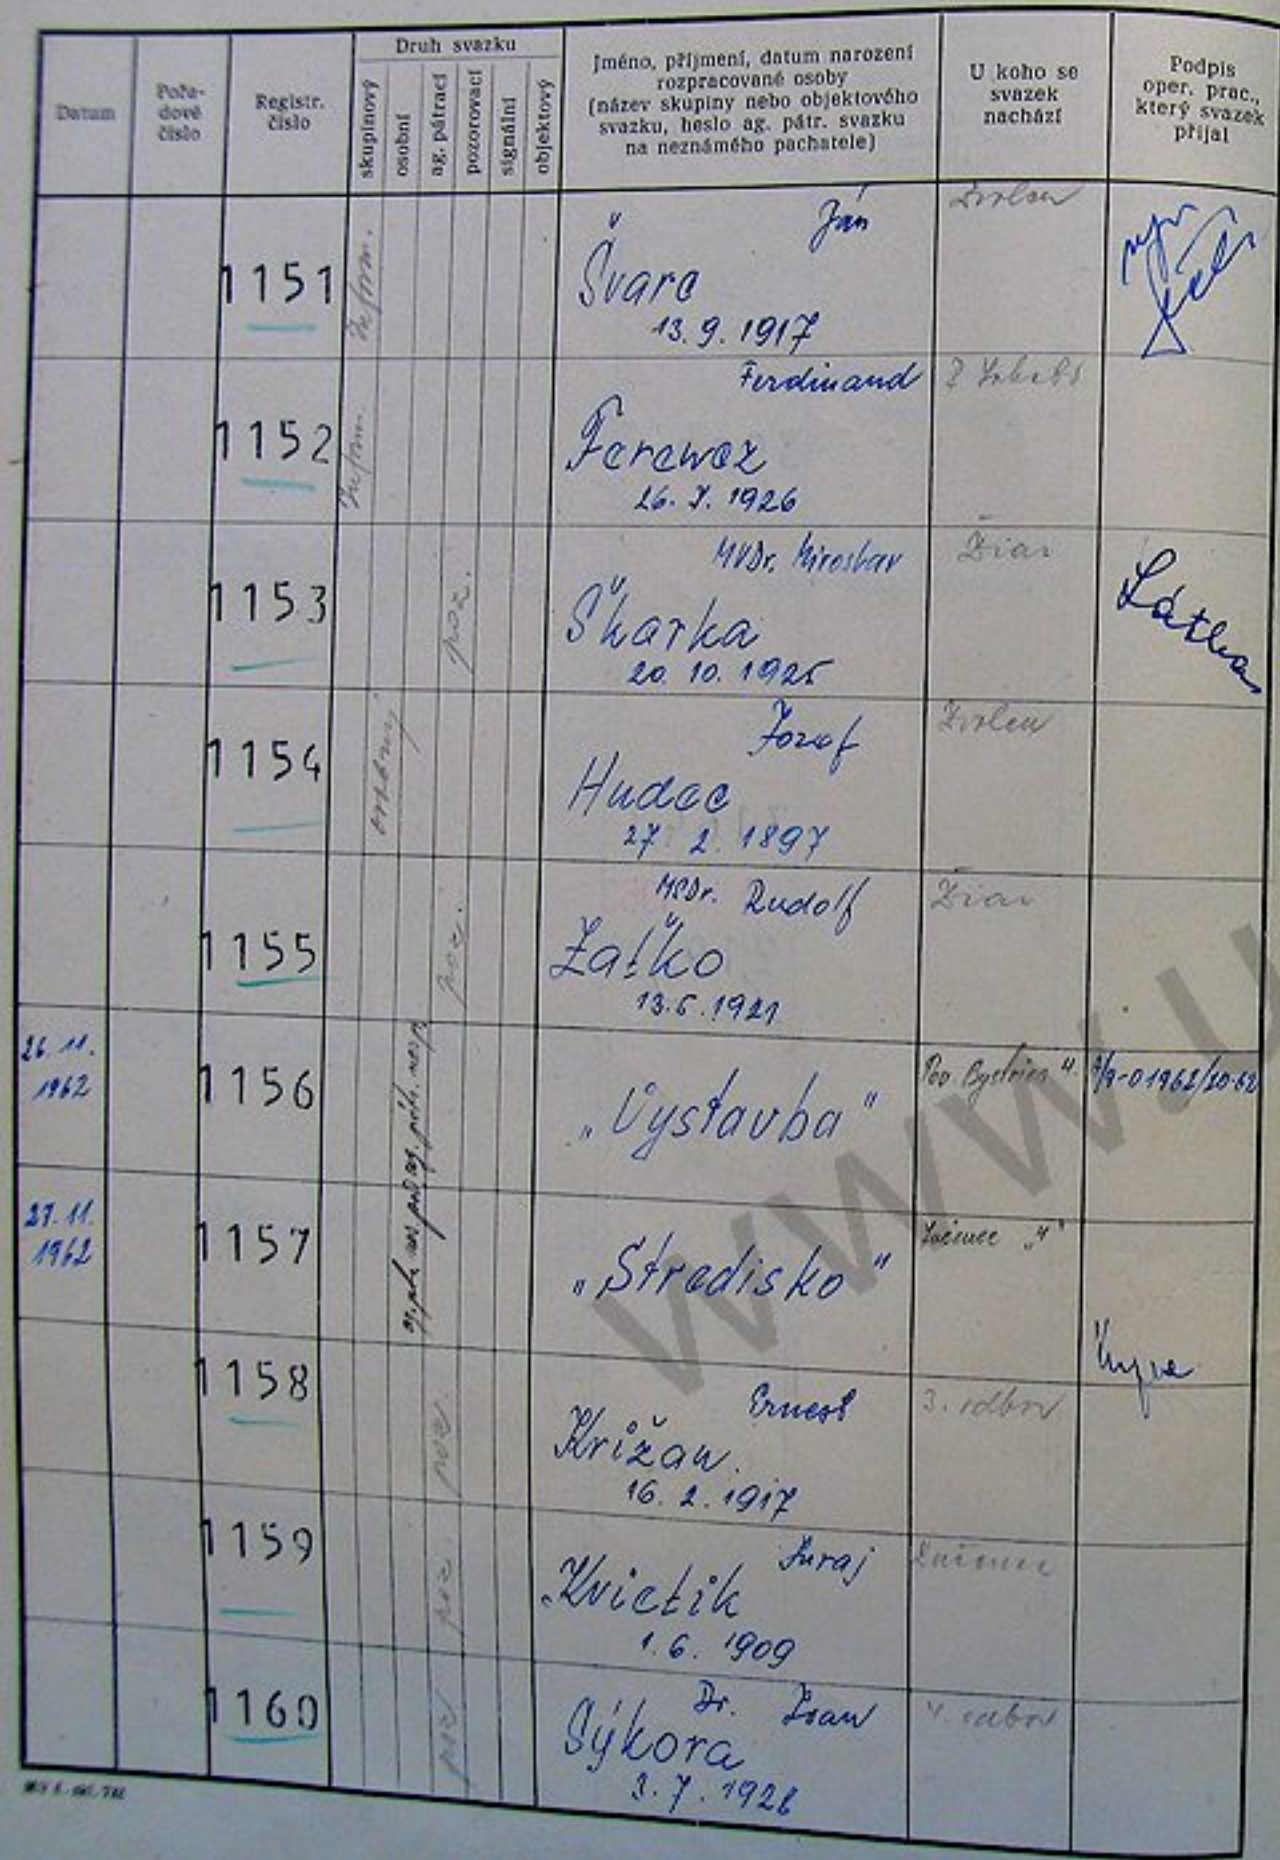 Datum
Pořa-
dové
číslo
Registr.
číslo
Druh svazku
skupinový
osobní
ag. pátrací
pozorovací
signální
objektový
Jméno, příjmení, datum narození
rozpracované osoby
(název skupiny nebo objektového
svazku, heslo ag. pátr. svazku
na neznámého pachatele)
U koho se
svazek
nachází
Podpis
oper. prac.,
který svazek
přijal
1151
Inform.
Ján
Švarc
13. 9. 1917
Zvolen
1152
Inform.
Ferdinand
Ferencz
26. 7. 1926
1153
poz.
MVDr. Miroslav
Škarka
20. 10. 1925
Žiar
1154
osobný
Jozef
Hudec
27. 2. 1897
Zvolen
1155
poz.
Rudolf
Zaťko
13. 6. 1921
Žiar
26. 11.
1962
1156
„Výstavba"
Pov. Bystrica
27. 11.
1962
1157
„Stredisko"
Lučenec „4"
1158
poz.
Ernest
Križan
16. 2. 1917
3. odbor
1159
poz.
Juraj
Kvietik
1. 6. 1909
Lučenec
1160
poz
Dr. Ivan
Sýkora
3. 7. 1928
4. odbor
www.u